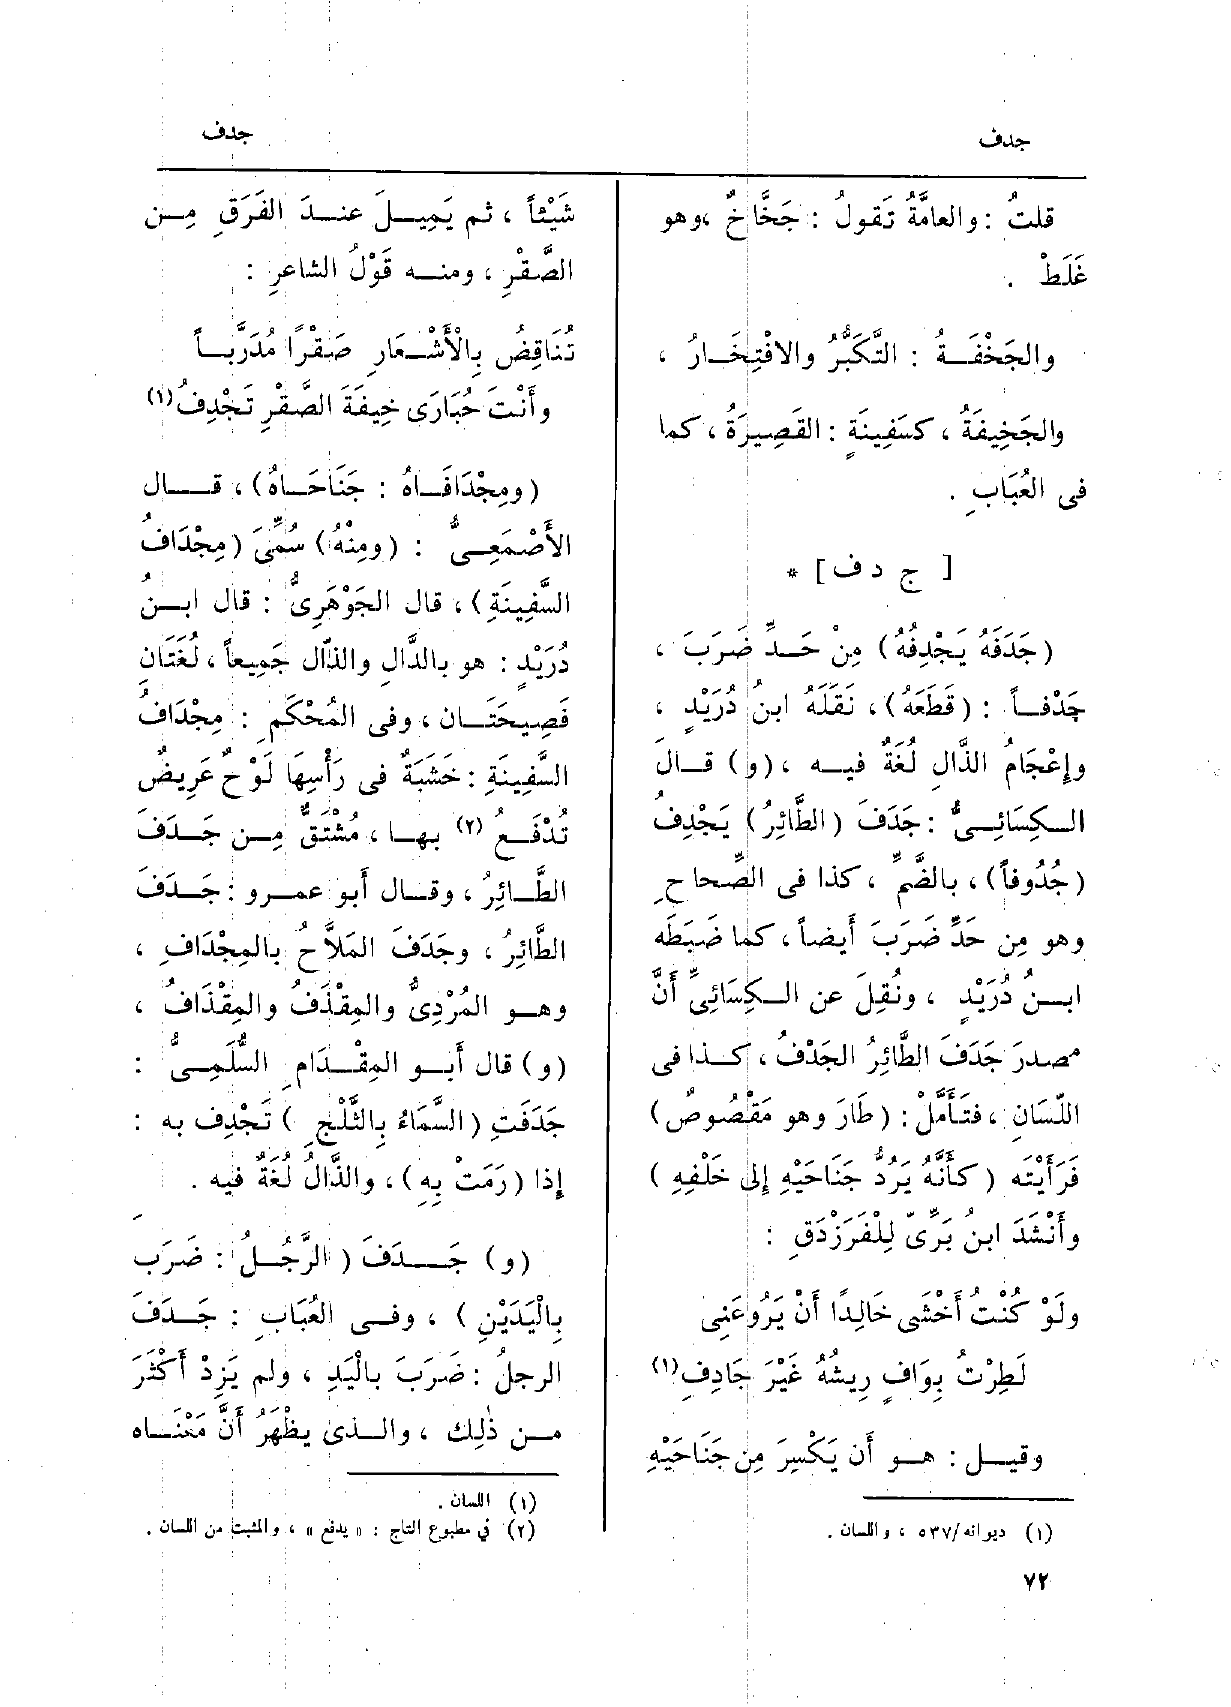 جدف
جدف
قلتُ : والعامَّةُ تَقولُ : جَخَّاخٌ ، وهو
غَلَطٌ .
والجَخْفَةُ : التَّكَبُّرُ والافْتِخَارُ ،
والجَخِيفَةُ ، كسَفِينَةٍ : القَصِيرَةُ ، كما
فى العُبَابِ .
[ ج د ف ] *
(جَدَفَهُ يَجْدِفُهُ) مِنْ حَدِّ ضَرَبَ ،
جَدْفاً : (قَطَعَهُ) ، نَقَلَهُ ابنُ دُرَيْدٍ ،
وإعْجَامُ الذَّالِ لُغَةٌ فيه ، (و) قالَ
الكِسَائِىُّ : جَدَفَ (الطَّائِرُ) يَجْدِفُ
(جُدُوفاً) ، بالضَّمِّ ، كذا فى الصِّحاحِ
وهو مِن حَدِّ ضَرَبَ أيضاً ، كما ضَبَطَه
ابنُ دُرَيْدٍ ، ونُقِلَ عن الكِسَائِىِّ أَنَّ
مصدرَ جَدَفَ الطَّائِرُ الجَدْفُ ، كذا فى
اللِّسَانِ ، فتَأَمَّلْ : (طَارَ وهو مَقْصُوصٌ)
فَرَأَيْتَه (كأَنَّهُ يَرُدُّ جَنَاحَيْهِ إِلى خَلْفِهِ)
وأَنْشَدَ ابنُ بَرِّىّ لِلْفَرَزْدَقِ :
ولَوْ كُنْتُ أَخْشَى خَالِدًا أَنْ يَرُوعَنِى
لَطِرْتُ بِوَافٍ رِيشُهُ غَيْرَ جَادِفِ (١)
وقيل : هو أَن يَكْسِرَ مِن جَنَاحَيْهِ
(١) ديوانه/٥٣٧ ، واللسان .
شَيْئاً ، ثم يَمِيلَ عندَ الفَرَقِ مِن
الصَّقْرِ ، ومنه قَوْلُ الشاعرِ :
تُنَاقِضُ بِالأَشْعَارِ صَقْرًا مُدَرَّباً
وأَنْتَ حُبَارَى خِيفَةَ الصَّقْرِ تَجْدِفُ (١)
(ومِجْدَافَاهُ : جَنَاحَاهُ) ، قال
الأَصْمَعِىُّ : (ومِنْهُ) سُمِّىَ (مِجْدَافُ
السَّفِينَةِ) ، قال الجَوْهَرِىُّ : قال ابنُ
دُرَيْدٍ : هو بالدَّالِ والذَّال جَمِيعاً ، لُغَتَانِ
فَصِيحَتَان ، وفى المُحْكَمِ : مِجْدَافُ
السَّفِينَةِ : خَشَبَةٌ فى رَأْسِهَا لَوْحٌ عَرِيضٌ
تُدْفَعُ (٢) بها ، مُشْتَقٌّ مِن جَدَفَ
الطَّائِرُ ، وقال أبو عمرو : جَدَفَ
الطَّائِرُ ، وجَدَفَ المَلاَّحُ بالمِجْدَافِ ،
وهو المُرْدِىُّ والمِقْذَفُ والمِقْذَافُ ،
(و) قال أَبو المِقْدَامِ السُّلَمِىُّ :
جَدَفَتِ (السَّمَاءُ بِالثَّلْجِ) تَجْدِف به :
إذا (رَمَتْ بِهِ) ، والذَّالُ لُغَةٌ فيه .
(و) جَدَفَ (الرَّجُلُ : ضَرَبَ
بِالْيَدَيْنِ) ، وفى العُبَابِ : جَدَفَ
الرجلُ : ضَرَبَ بالْيَدِ ، ولم يَزِدْ أَكْثَرَ
من ذٰلِك ، والذى يظْهَرُ أَنَّ مَعْنَاه
(١) اللسان .
(٢) في مطبوع التاج : « يدفع » ، والمثبت من اللسان .
٧٢